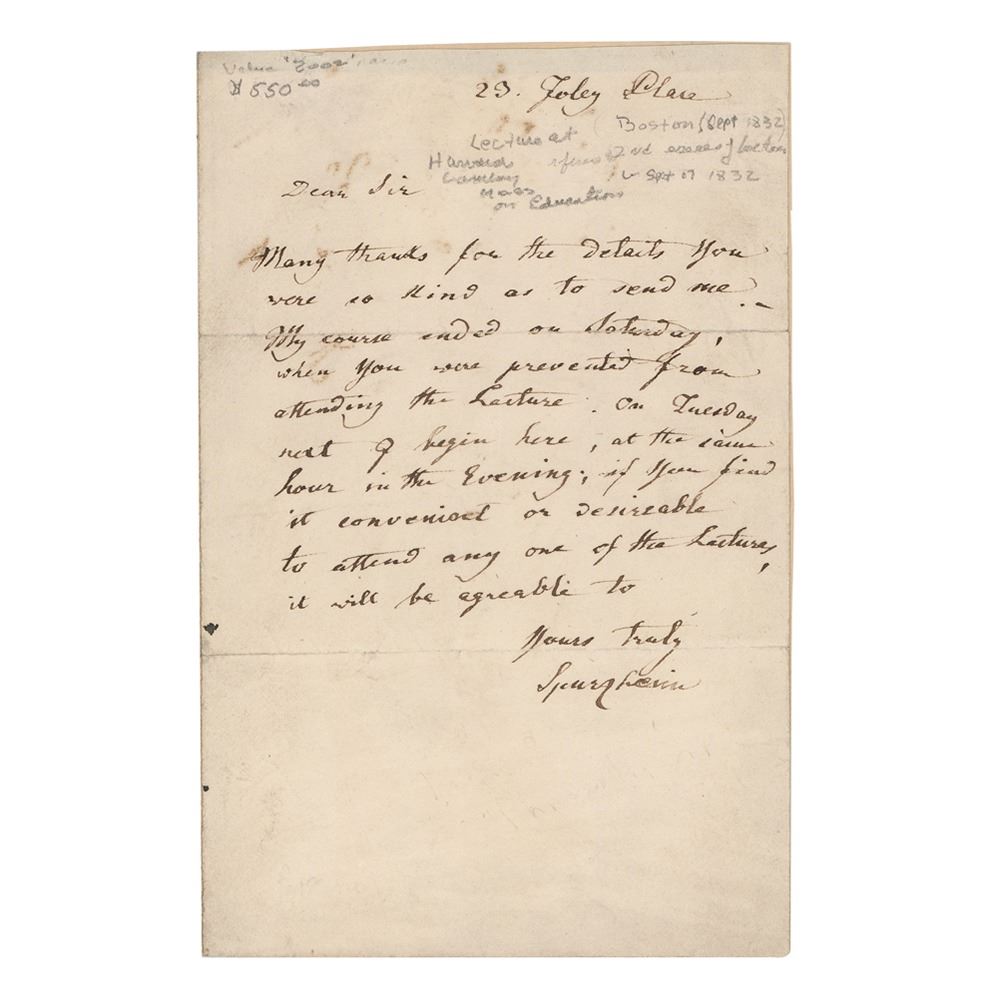 Value "2002"
$ 550.00
23. Foley Place
Boston (Sept 1832)
Lecture at
Harvard 2nd of lectures
Sept 17 1832
Mass
on Education
Dear Sir
Many thanks for the details you
were so kind as to send me.-
My course ended on Saturday,
when you were prevented from
attending the Lecture. On Tuesday
next I begin here, at the same
hour in the Evening; if you find
it convenient or desireable
to attend any one of the Lectures,
it will be agreable to
Yours truly
Spurzheim